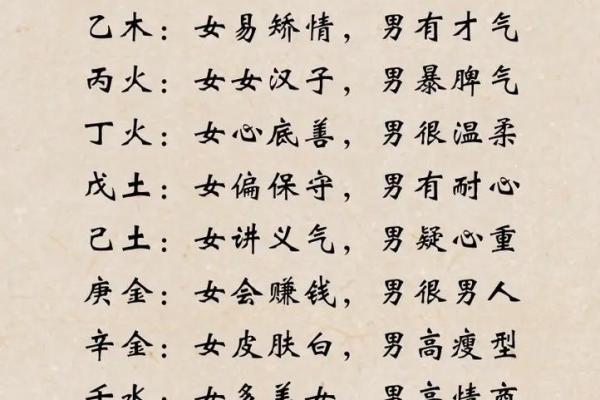 乙木：女易矫情，男有才气
丙火：女女汉子，男暴脾气
丁火：女心底善，男很温柔
戊土：女偏保守，男有耐心
己土：女讲义气，男疑心重
庚金：女会赚钱，男很男人
辛金：女皮肤白，男高瘦型
壬水：女多美女，男高情商